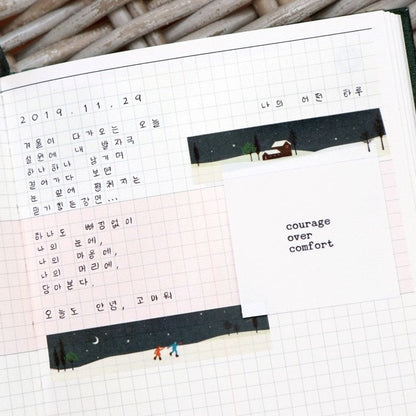 2019.11.29
나의 어떤 하루
겨울이 다가오는 오늘
설원에 내 발자국
하나하나 남기며
걸어가다 보면
눈 앞에 펼쳐지는
믿기 힘든 장면...
하나도 빠짐없이
나의 눈에,
나의 마음에,
나의 머리에,
담아본다.
오늘도 안녕, 고마워
courage
over
comfort